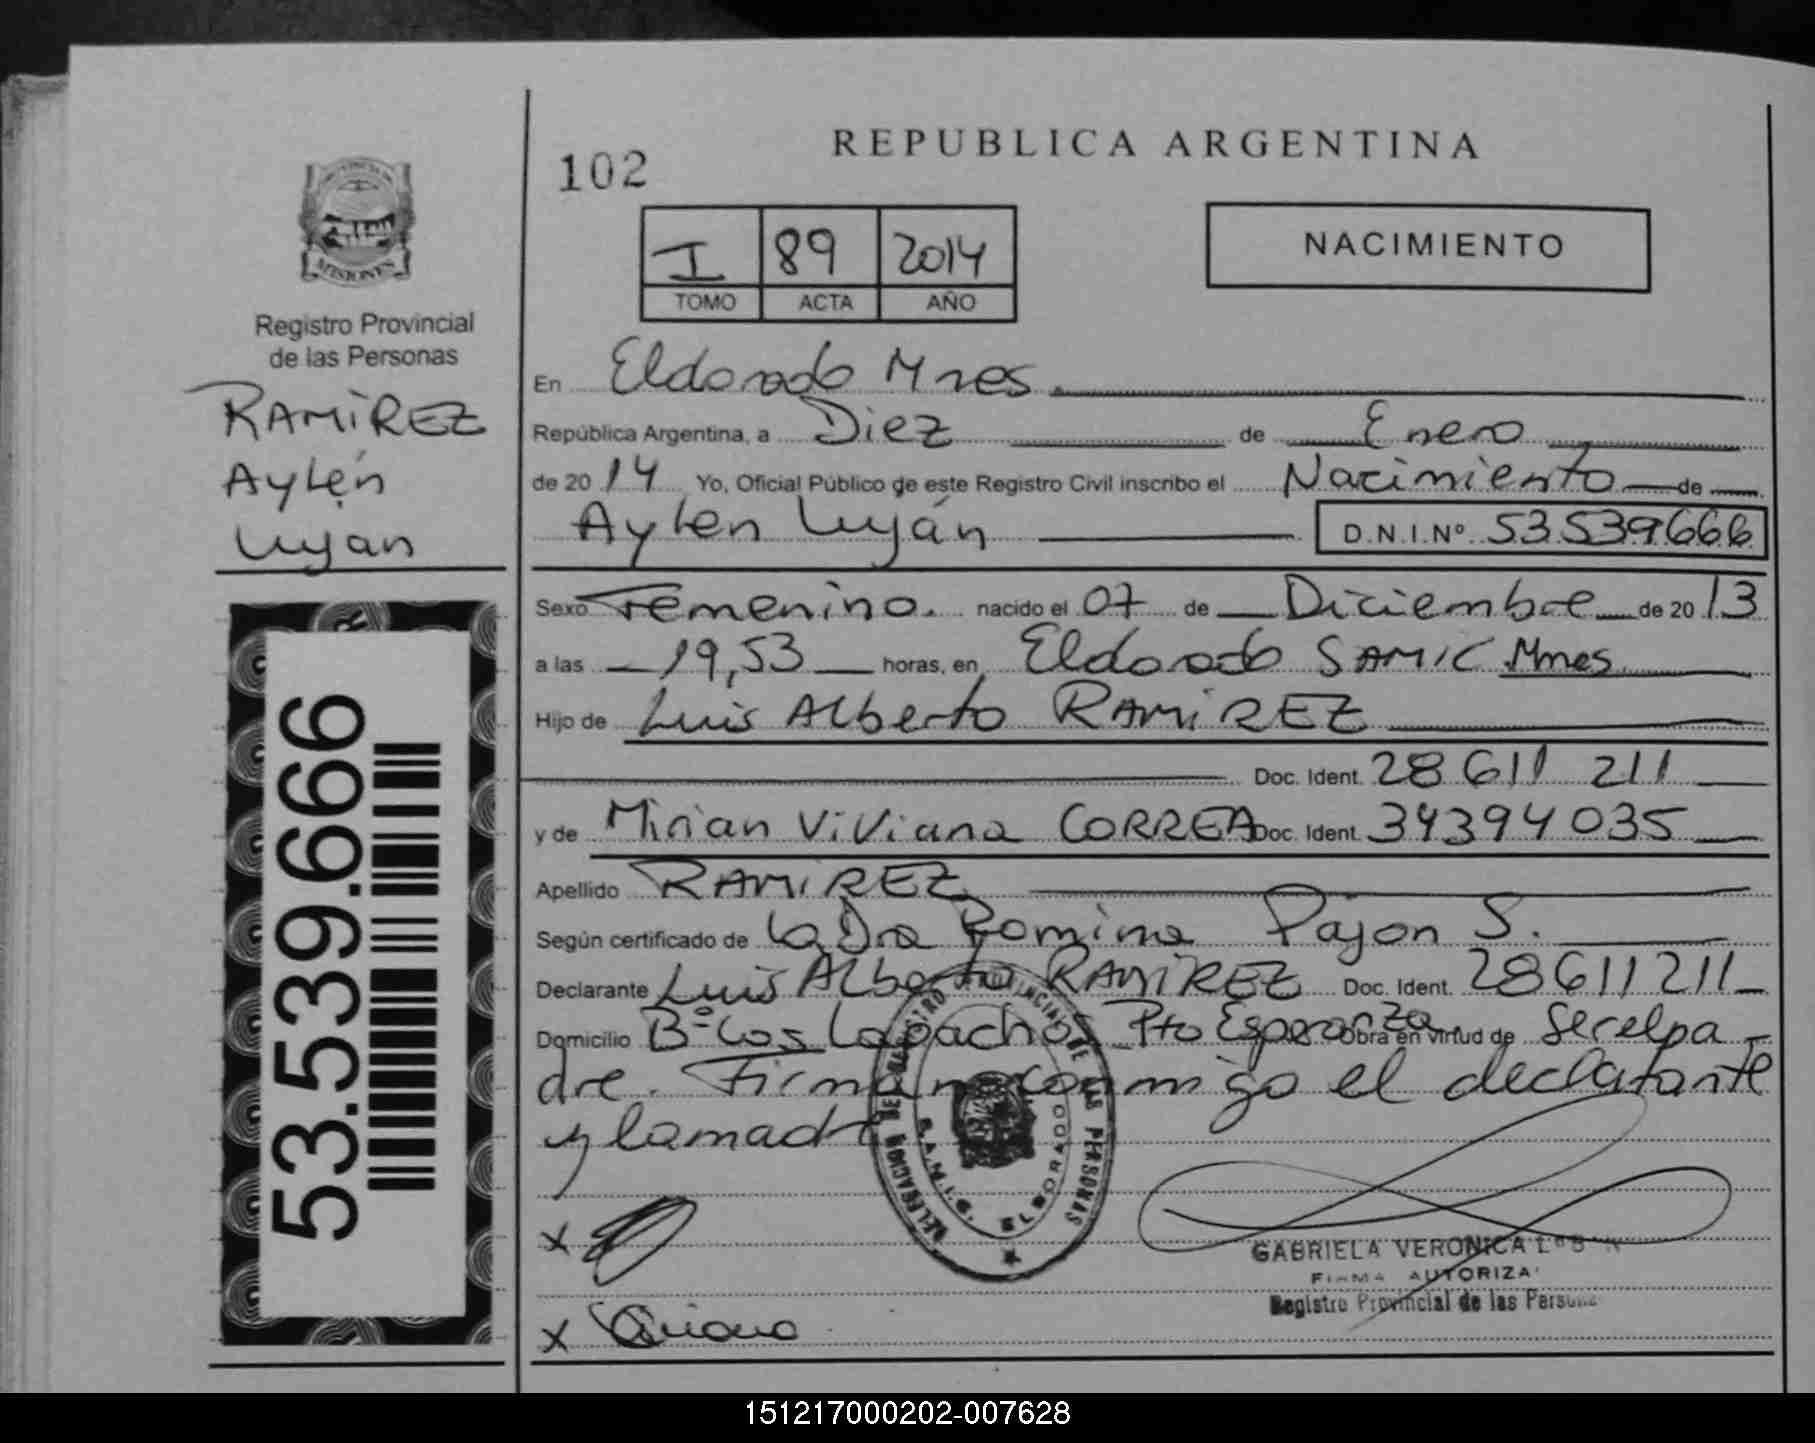 REPUBLICA ARGENTINA
102
NACIMIENTO
I 89 2014
TOMO ACTA AÑO
MISIONES
Registro Provincial
de las Personas
RAMIREZ
Aylén
Luján
53.539.666
En Eldorado Mnes.
República Argentina, a Diez de Enero
de 2014 Yo, Oficial Público de este Registro Civil inscribo el Nacimiento de
Aylen Luján D.N.I.Nº 53539666
Sexo Femenino. nacido el 07 de Diciembre de 2013
a las 19,53 horas, en Eldorado SAMIC Mnes
Hijo de Luis Alberto RAMIREZ
Doc. Ident. 28 611 211
y de Mirian Viviana CORREA Doc. Ident. 34394035
Apellido RAMIREZ
Según certificado de la Dra Romina Pajon S.
Declarante Luis Alberto RAMIREZ Doc. Ident. 28611211
Domicilio Bº Los Lapachos Pto Esperanza Obra en virtud de Ser el pa
dre. Firman conmigo el declarante
y la madre
DELEGACION DE REGISTRO PROVINCIAL DE LAS PERSONAS
ELDORADO
X
GABRIELA VERONICA
FIRMA AUTORIZA
Registro Provincial de las Persona
X
151217000202-007628